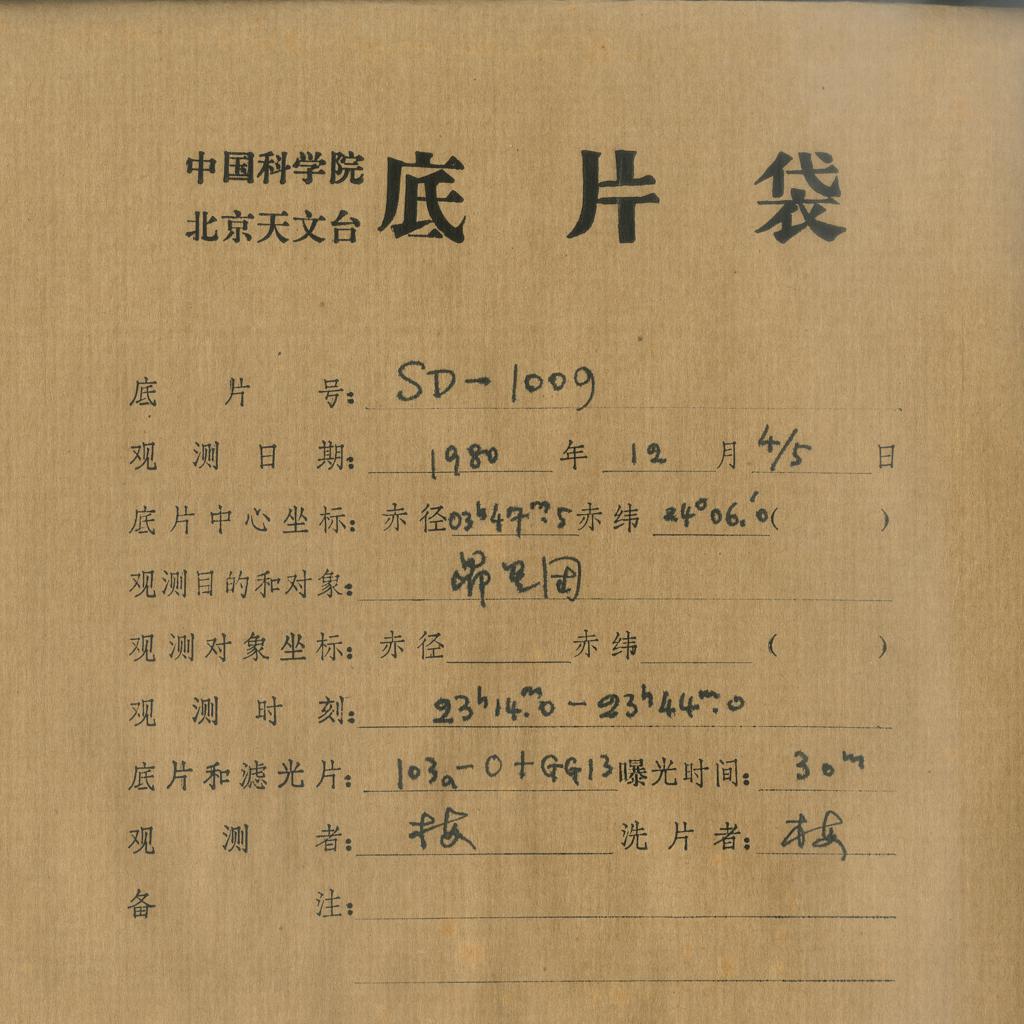 中国科学院
北京天文台
底片袋
底片号：SD-1009
观测日期：1980年12月4/5日
底片中心坐标：赤径03ʰ47ᵐ.5赤纬24°06.′0( )
观测目的和对象：昴星团
观测对象坐标：赤径 赤纬 ( )
观测时刻：23ʰ14ᵐ.0-23ʰ44ᵐ.0
底片和滤光片：103a-O+GG13曝光时间：30ᵐ
观测者：梅 洗片者：梅
备注：